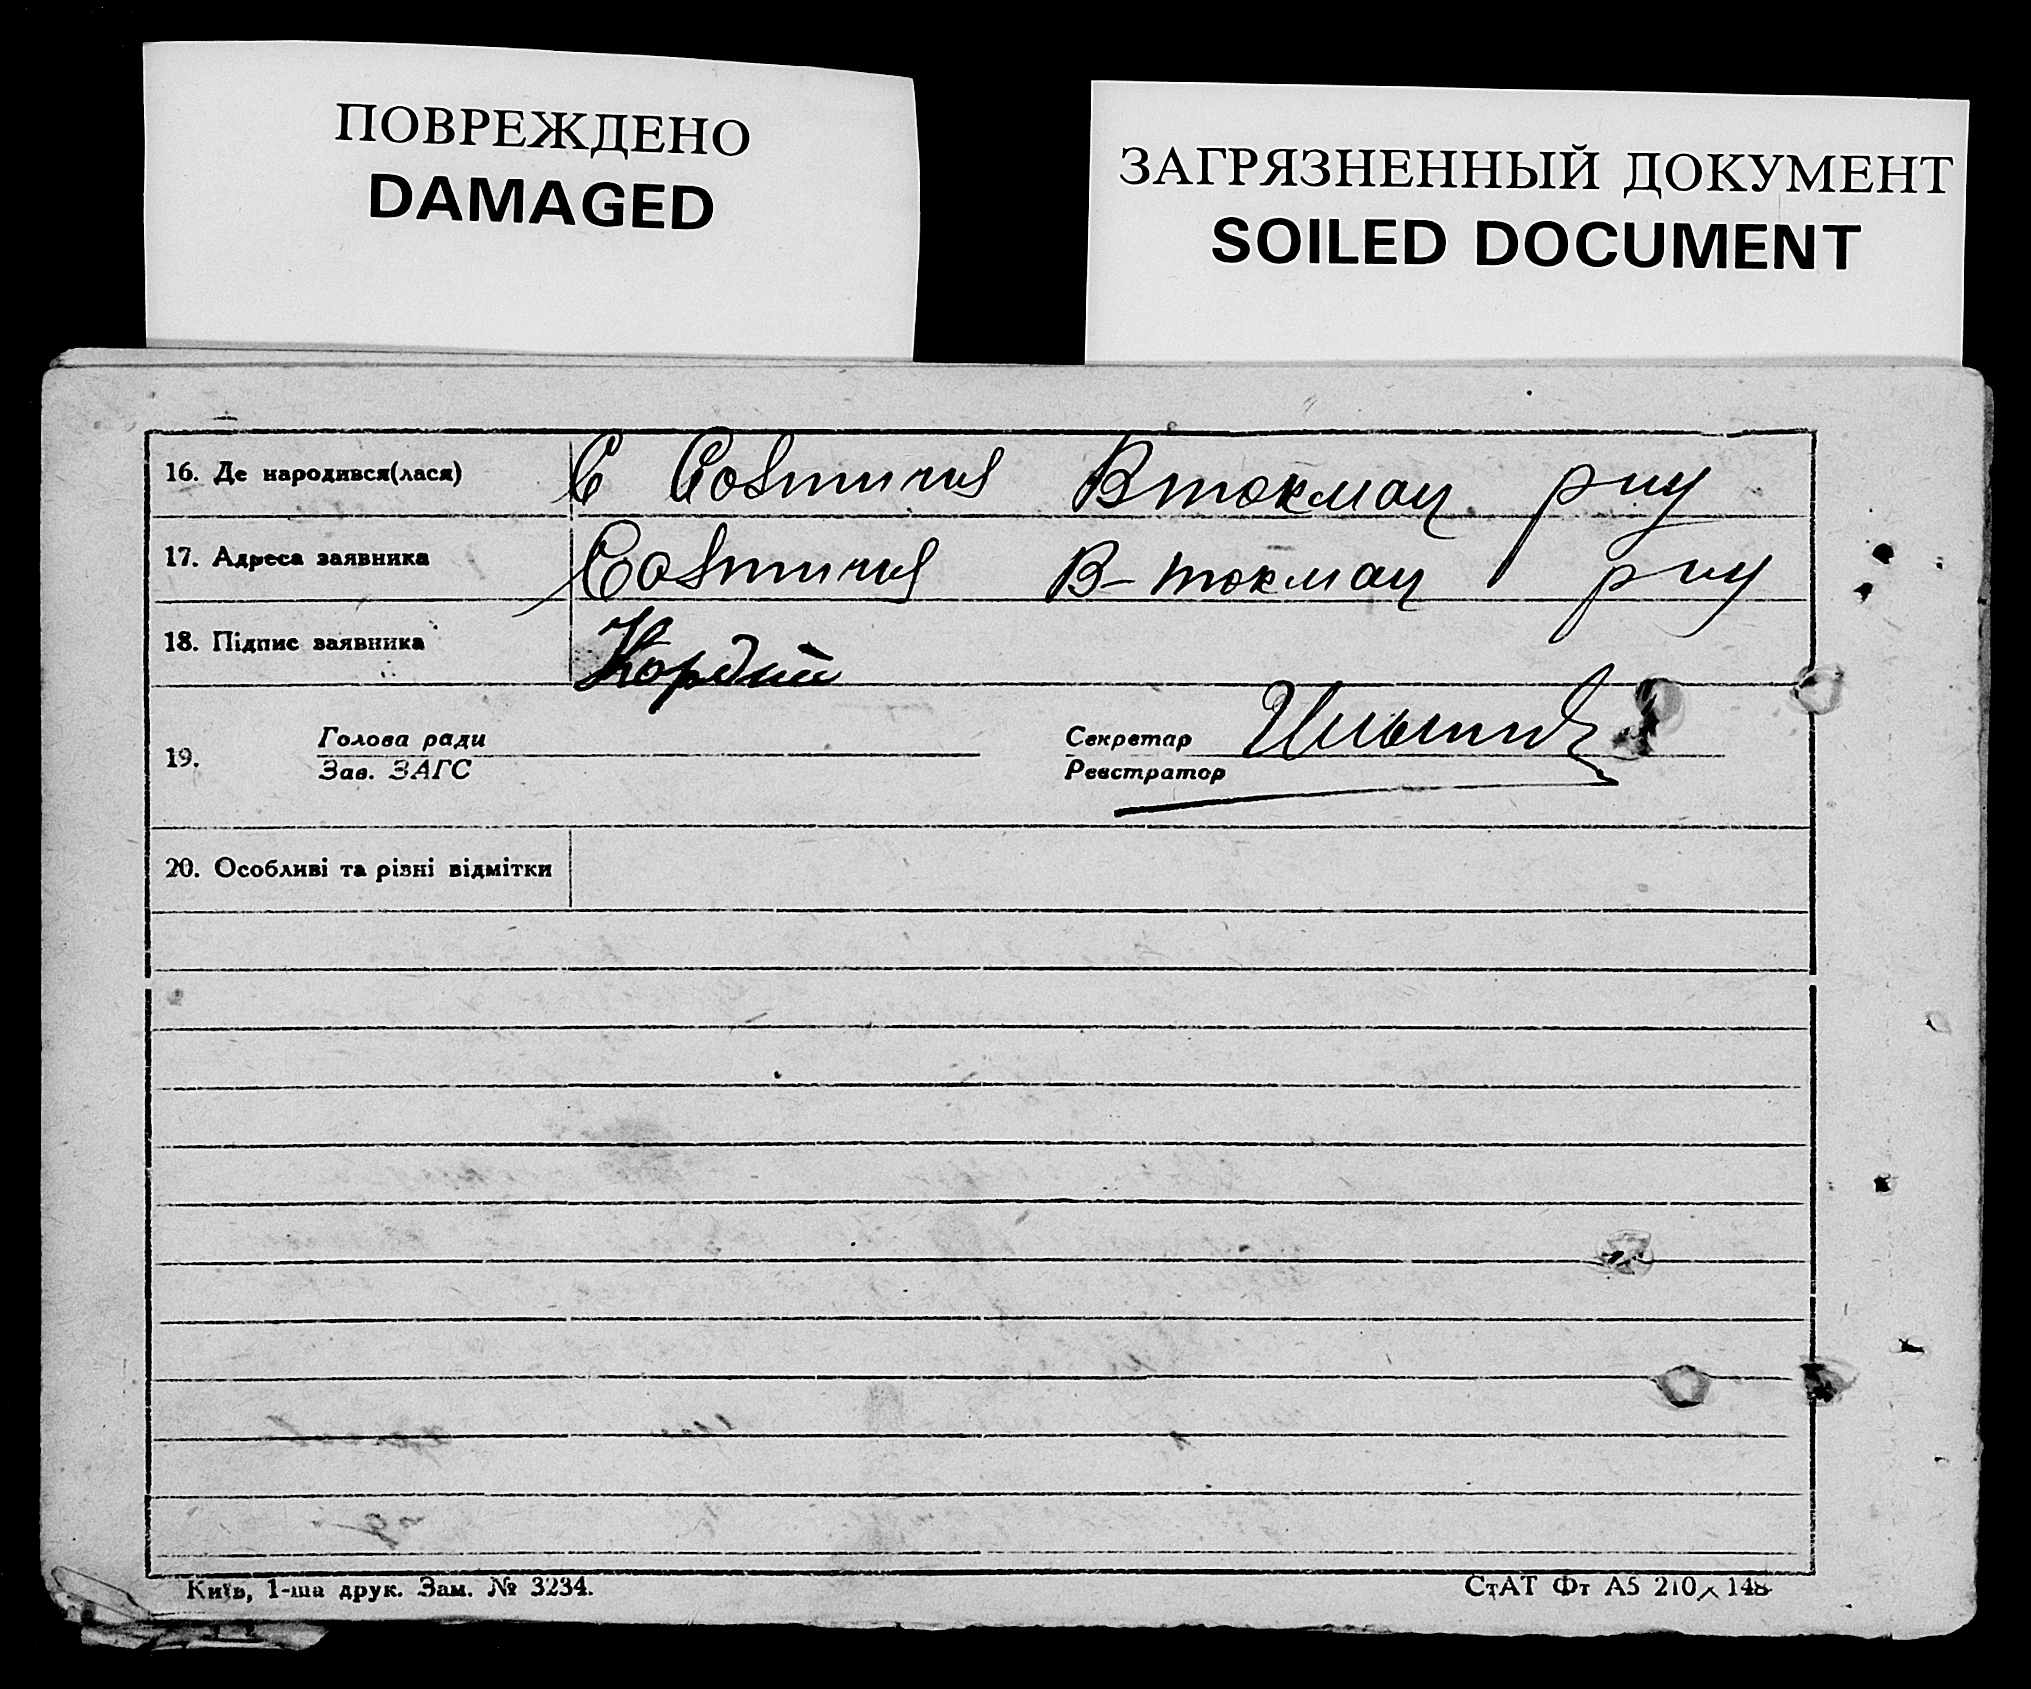 ПОВРЕЖДЕНО
DAMAGED
ЗАГРЯЗНЕННЫЙ ДОКУМЕНТ
SOILED DOCUMENT
16. Де народився(лася) С Солтичия Втокмац рну
17. Адреса заявника В-токмац рну
18. Підпис заявника
19. Голова ради
Зав. ЗАГС
Секретар
Реєстратор
20. Особливі та різні відмітки
Київ, 1-ша друк. Зам. № 3234.
СтАТ Фт А5 210×148